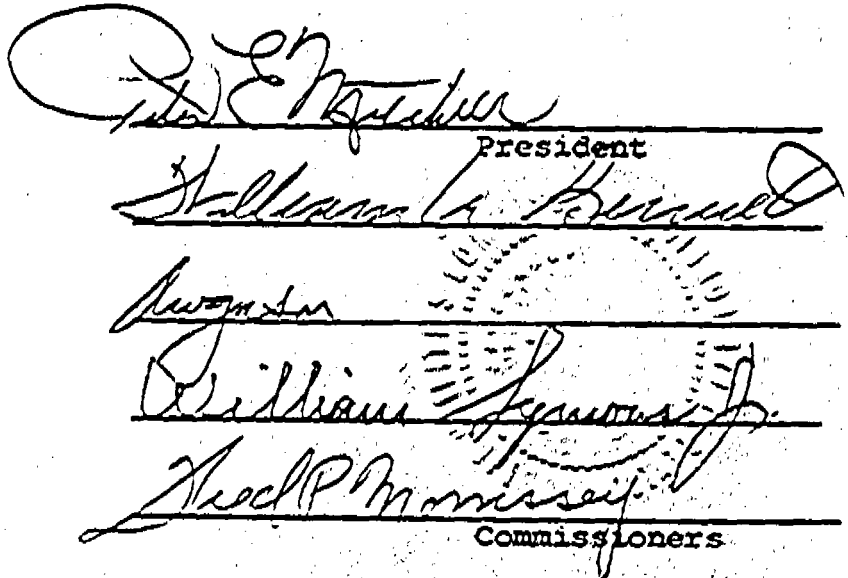 Peter E Mitchell
President
William M. Bennett
William Symons Jr.
Fred P Morrissey
Commissioners